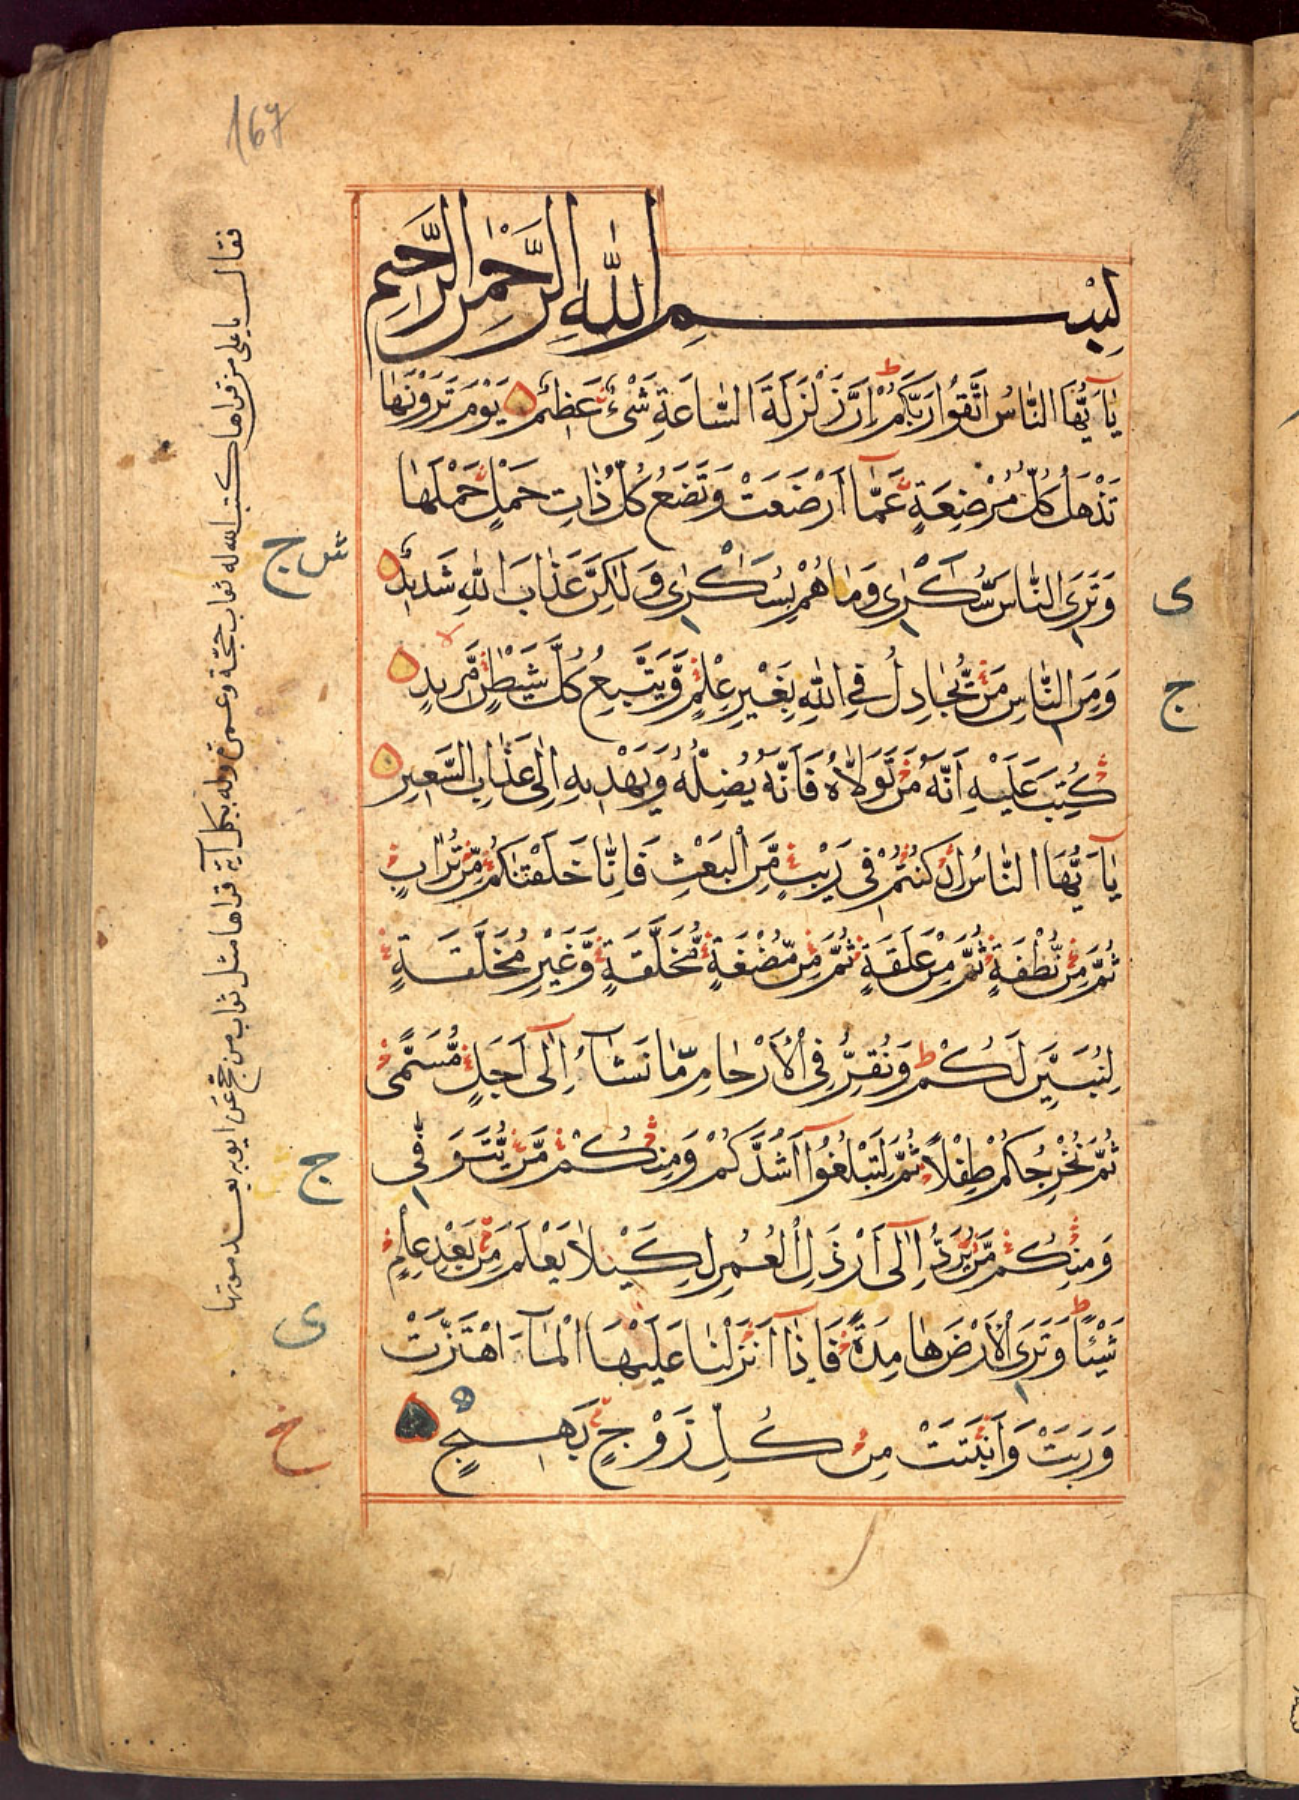 167
بِسْمِ اللهِ الرَّحْمٰنِ الرَّحِيمِ
يَاأَيُّهَا النَّاسُ اتَّقُوا رَبَّكُمْ ط اِنَّ زَلْزَلَةَ السَّاعَةِ شَىْءٌ عَظِيمٌ يَوْمَ تَرَوْنَهَا
تَذْهَلُ كُلُّ مُرْضِعَةٍ عَمَّا اَرْضَعَتْ وَتَضَعُ كُلُّ ذَاتِ حَمْلٍ حَمْلَهَا
وَتَرَى النَّاسَ سُكَارٰى وَمَا هُمْ بِسُكَارٰى وَلَاكِنَّ عَذَابَ اللهِ شَدِيدٌ
وَمِنَ النَّاسِ مَنْ يُجَادِلُ فِى اللهِ بِغَيْرِ عِلْمٍ وَيَتَّبِعُ كُلَّ شَيْطٰنٍ مَرِيدٍ
كُتِبَ عَلَيْهِ اَنَّهُ مَنْ تَوَلَّاهُ فَاَنَّهُ يُضِلُّهُ وَيَهْدِيهِ اِلٰى عَذَابِ السَّعِيرِ
يَاأَيُّهَا النَّاسُ اِنْ كُنْتُمْ فِى رَيْبٍ مِنَ الْبَعْثِ فَاِنَّا خَلَقْنَاكُمْ مِنْ تُرَابٍ
ثُمَّ مِنْ نُطْفَةٍ ثُمَّ مِنْ عَلَقَةٍ ثُمَّ مِنْ مُضْغَةٍ مُخَلَّقَةٍ وَغَيْرِ مُخَلَّقَةٍ
لِنُبَيِّنَ لَكُمْ ط وَنُقِرُّ فِى الْاَرْحَامِ مَا نَشَاءُ اِلٰى اَجَلٍ مُسَمًّى
ثُمَّ نُخْرِجُكُمْ طِفْلًا ثُمَّ لِتَبْلُغُوا اَشُدَّكُمْ وَمِنْكُمْ مَنْ يُتَوَفّٰى
وَمِنْكُمْ مَنْ يُرَدُّ اِلٰى اَرْذَلِ الْعُمُرِ لِكَيْلَا يَعْلَمَ مِنْ بَعْدِ عِلْمٍ
شَيْئًا ط وَتَرَى الْاَرْضَ هَامِدَةً فَاِذَا اَنْزَلْنَا عَلَيْهَا الْمَاءَ اهْتَزَّتْ
وَرَبَتْ وَاَنْبَتَتْ مِنْ كُلِّ زَوْجٍ بَهِيجٍ
ى
ج
ش ج
ج
ى
خ
فقال يا على من قراها كتب الله له ثواب حجة وعمرة وله بكل آية قراها مثل ثواب من حج عن ابويه بعد موتهما